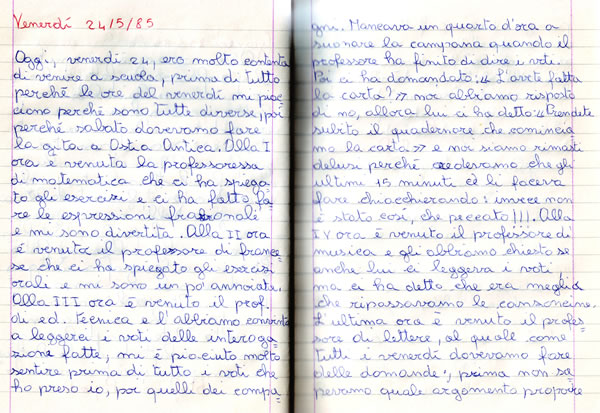 Venerdí 24/5/85
Oggi, venerdí 24, ero molto contenta
di venire a scuola, prima di tutto
perché le ore del venerdí mi piac-
ciono perché sono tutte diverse, poi
perché sabato dovevamo fare
la gita a Ostia Antica. Alla I
ora è venuta la professoressa
di matematica che ci ha spiega-
to gli esercizi e ci ha fatto fa-
re le espressioni frazionali
e mi sono divertita. Alla II ora
è venuto il professore di france-
se che ci ha spiegato gli esercizi
orali e mi sono un po' annoiata.
Alla III ora è venuto il prof.
di ed. tecnica e l'abbiamo convinto
a leggerci i voti delle interroga-
zione fatte, mi è piaciuto molto
sentire prima di tutto i voti che
ho preso io, poi quelli dei compa-
gni. Mancava un quarto d'ora a
suonare la campana quando il
professore ha finito di dire i voti.
Poi ci ha domandato: « L'avete fatta
la carta? » noi abbiamo risposto
di no, allora lui ci ha detto: « Prendete
subito il quadernone che comincia
mo la carta » e noi siamo rimasti
delusi perché credevamo che gli
ultimi 15 minuti ce li faceva
fare chiaccherando: invece non
è stato cosí, che peccato!!!. Alla
IV ora è venuto il professore di
musica e gli abbiamo chiesto se
anche lui ci leggeva i voti
ma ci ha detto che era meglio
che ripassavamo le canzoncine.
L'ultima ora è venuto il profes-
sore di lettere, al quale come
tutti i venerdí dovevamo fare
delle domande; prima non sa-
pevamo quale argomento proporre